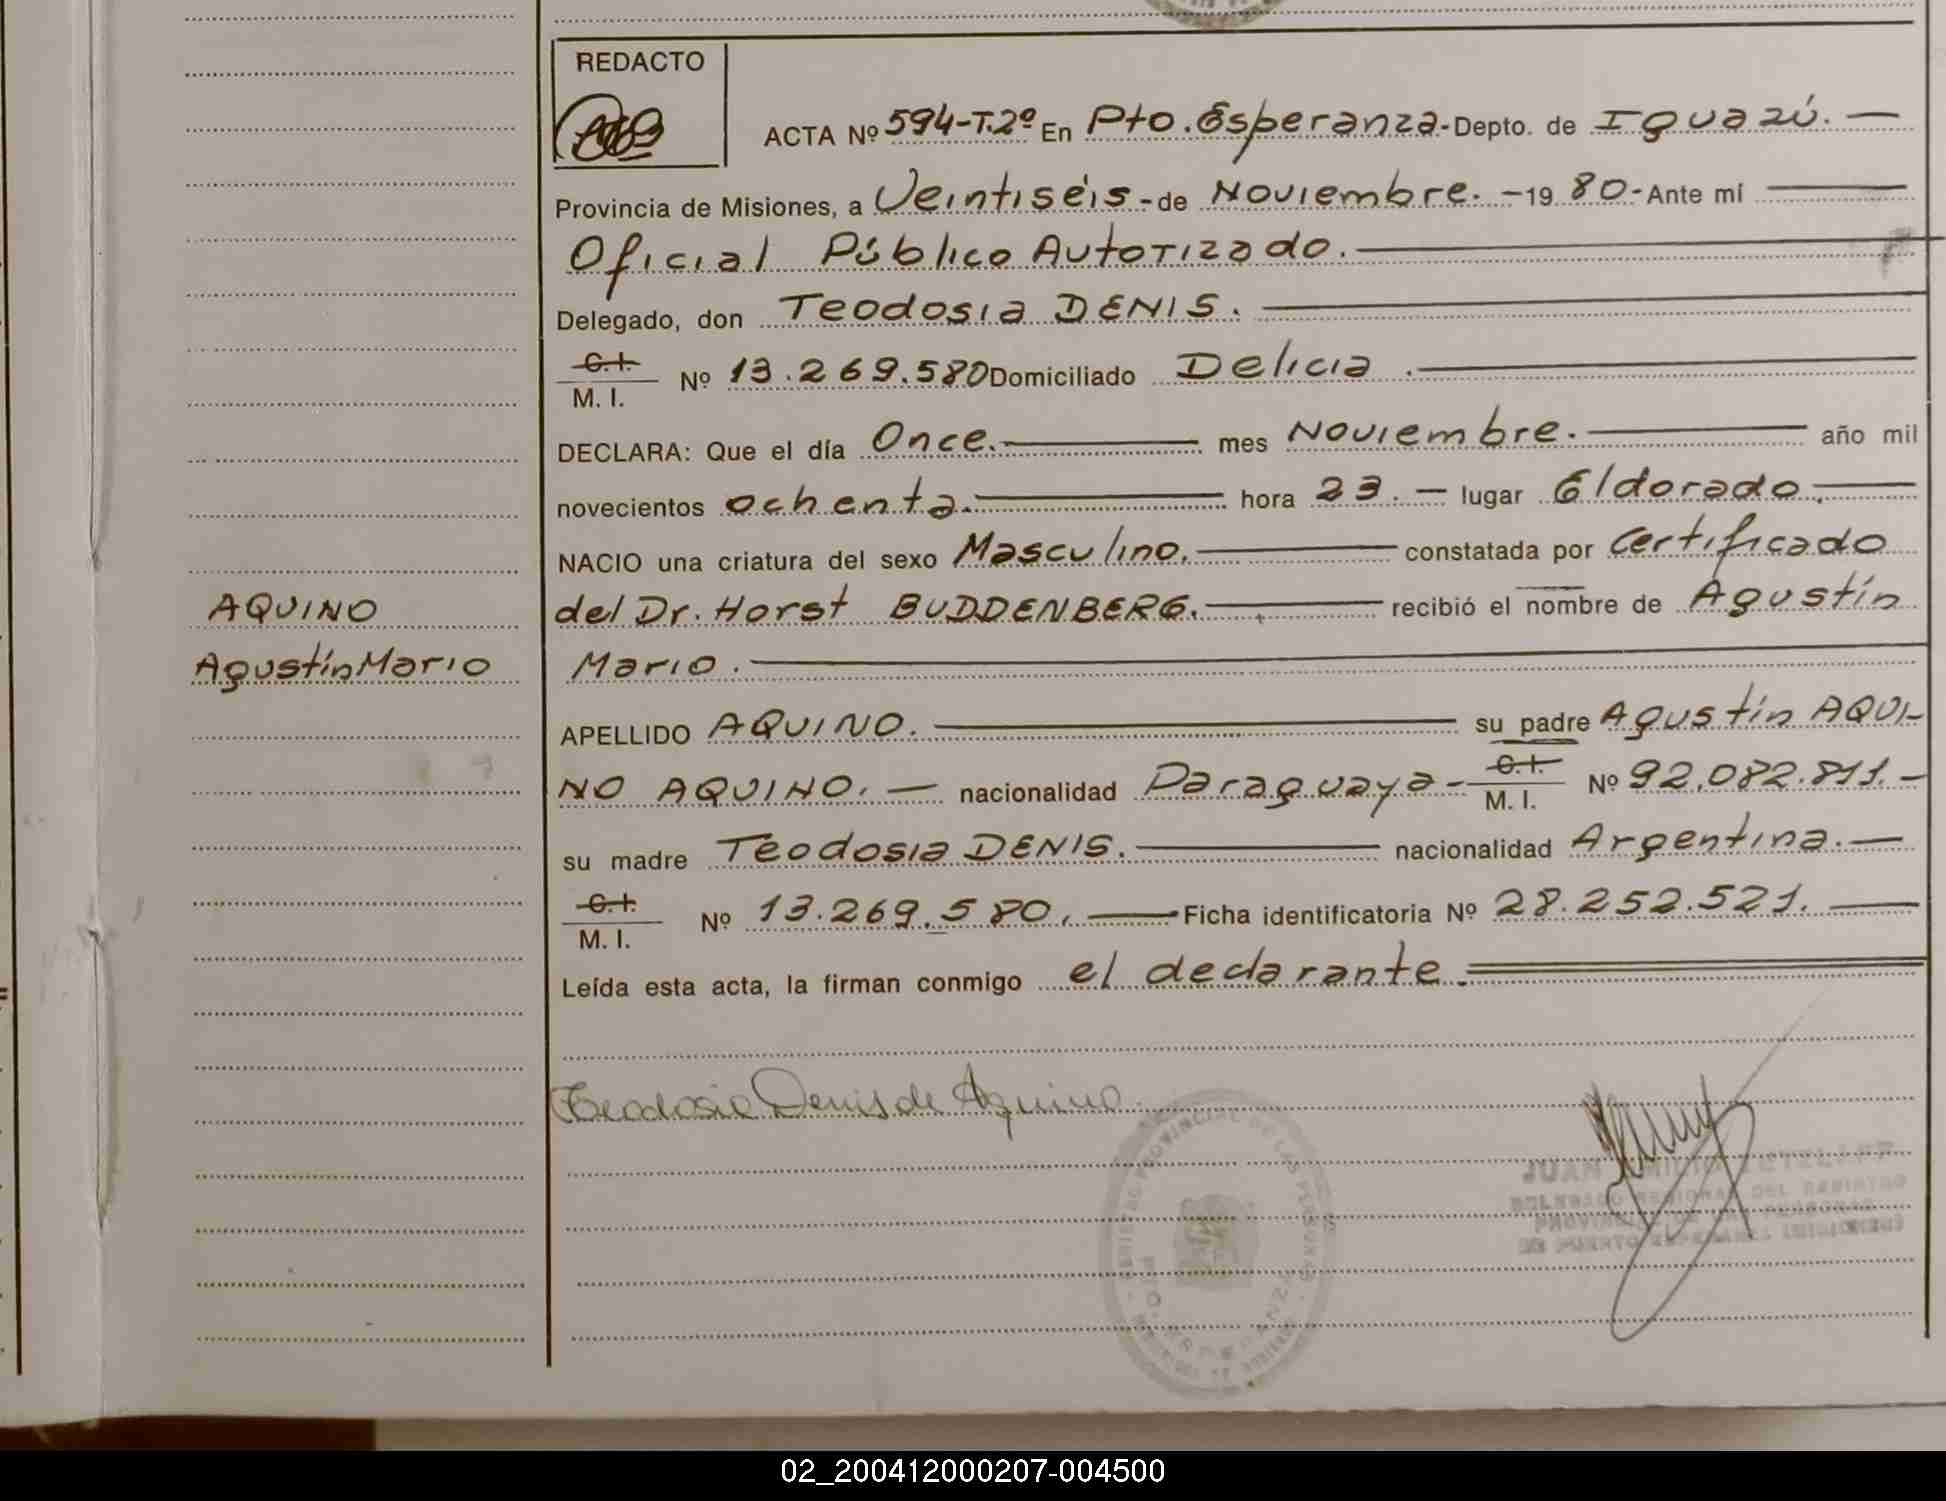 REDACTO
ACTA Nº 594-T.2º En Pto. Esperanza.- Depto. de Iguazú. —
Provincia de Misiones, a Veintiséis - de Noviembre. - 19 80.- Ante mí
Oficial Público Autorizado.
Delegado, don Teodosia DENIS.
C.I.
M. I. Nº 13.269.580 Domiciliado Delicia .
DECLARA: Que el día Once. mes Noviembre. año mil
novecientos ochenta. hora 23. — lugar Eldorado.
NACIO una criatura del sexo Masculino. constatada por Certificado
del Dr. Horst BUDDENBERG. recibió el nombre de Agustín
Mario.
APELLIDO AQUINO. su padre Agustín AQUI-
NO AQUINO. — nacionalidad Paraguaya - C.I.
M. I. Nº 92.082.811. -
su madre Teodosia DENIS. nacionalidad Argentina. —
C.I.
M. I. Nº 13.269.580. Ficha identificatoria Nº 28.252.521.
Leída esta acta, la firman conmigo el declarante.
AQUINO
Agustín Mario
Teodosia Denis de Aquino.
REGISTRO PROVINCIAL DE LAS PERSONAS
JUAN
DELEGADO REGIONAL DEL REGISTRO
PROVINCIAL DE LAS PERSONAS
DE PUERTO ESPERANZA
02_200412000207-004500